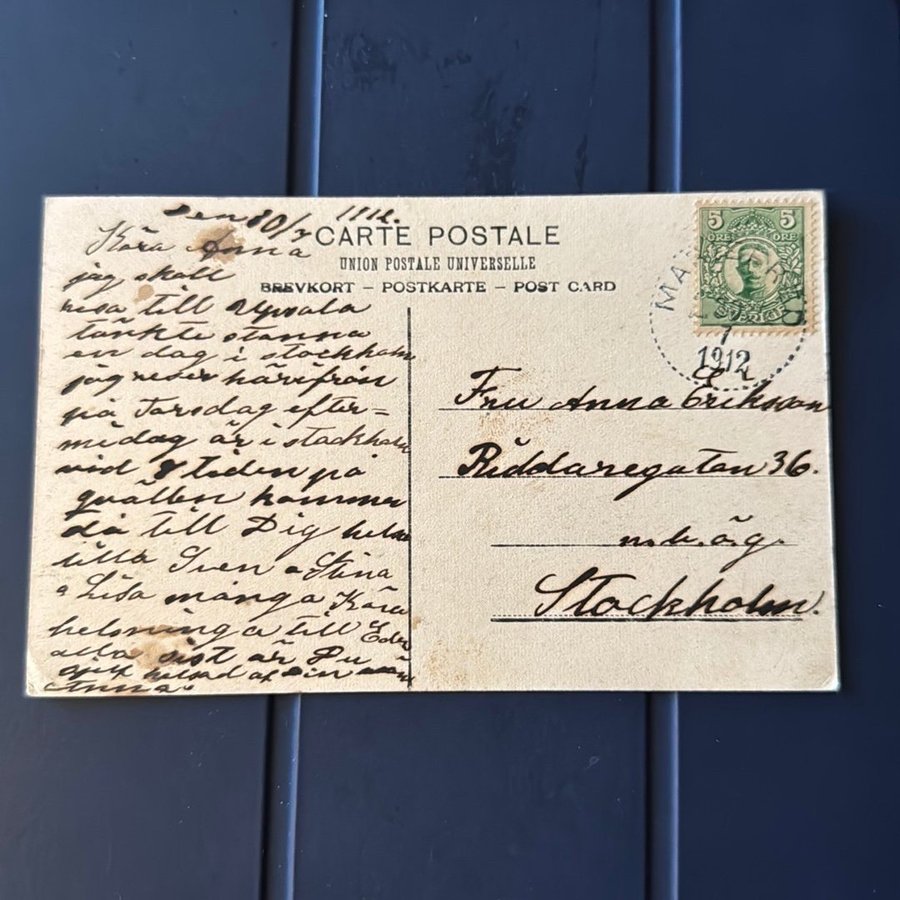 Den 30/7 1912.
CARTE POSTALE
UNION POSTALE UNIVERSELLE
BREVKORT – POSTKARTE – POST CARD
Kära Anna
jag skall
resa till Upsala
tänkte stanna
en dag i stockholm
jag reser härifrån
på Torsdag efter=
midag är i stockholm
vid 8 tiden på
qvällen kommer
då till Dig helsa
lilla Sven o Stina
o Lisa många Kära
helsninga till Eder
alla sist är Du
sjelf helsad af
Anna.
5 5
ÖRE ÖRE
SVERIGE
1912
Fru Anna Erikson
Riddaregatan 36.
n.b.ö.g.
Stockholm.